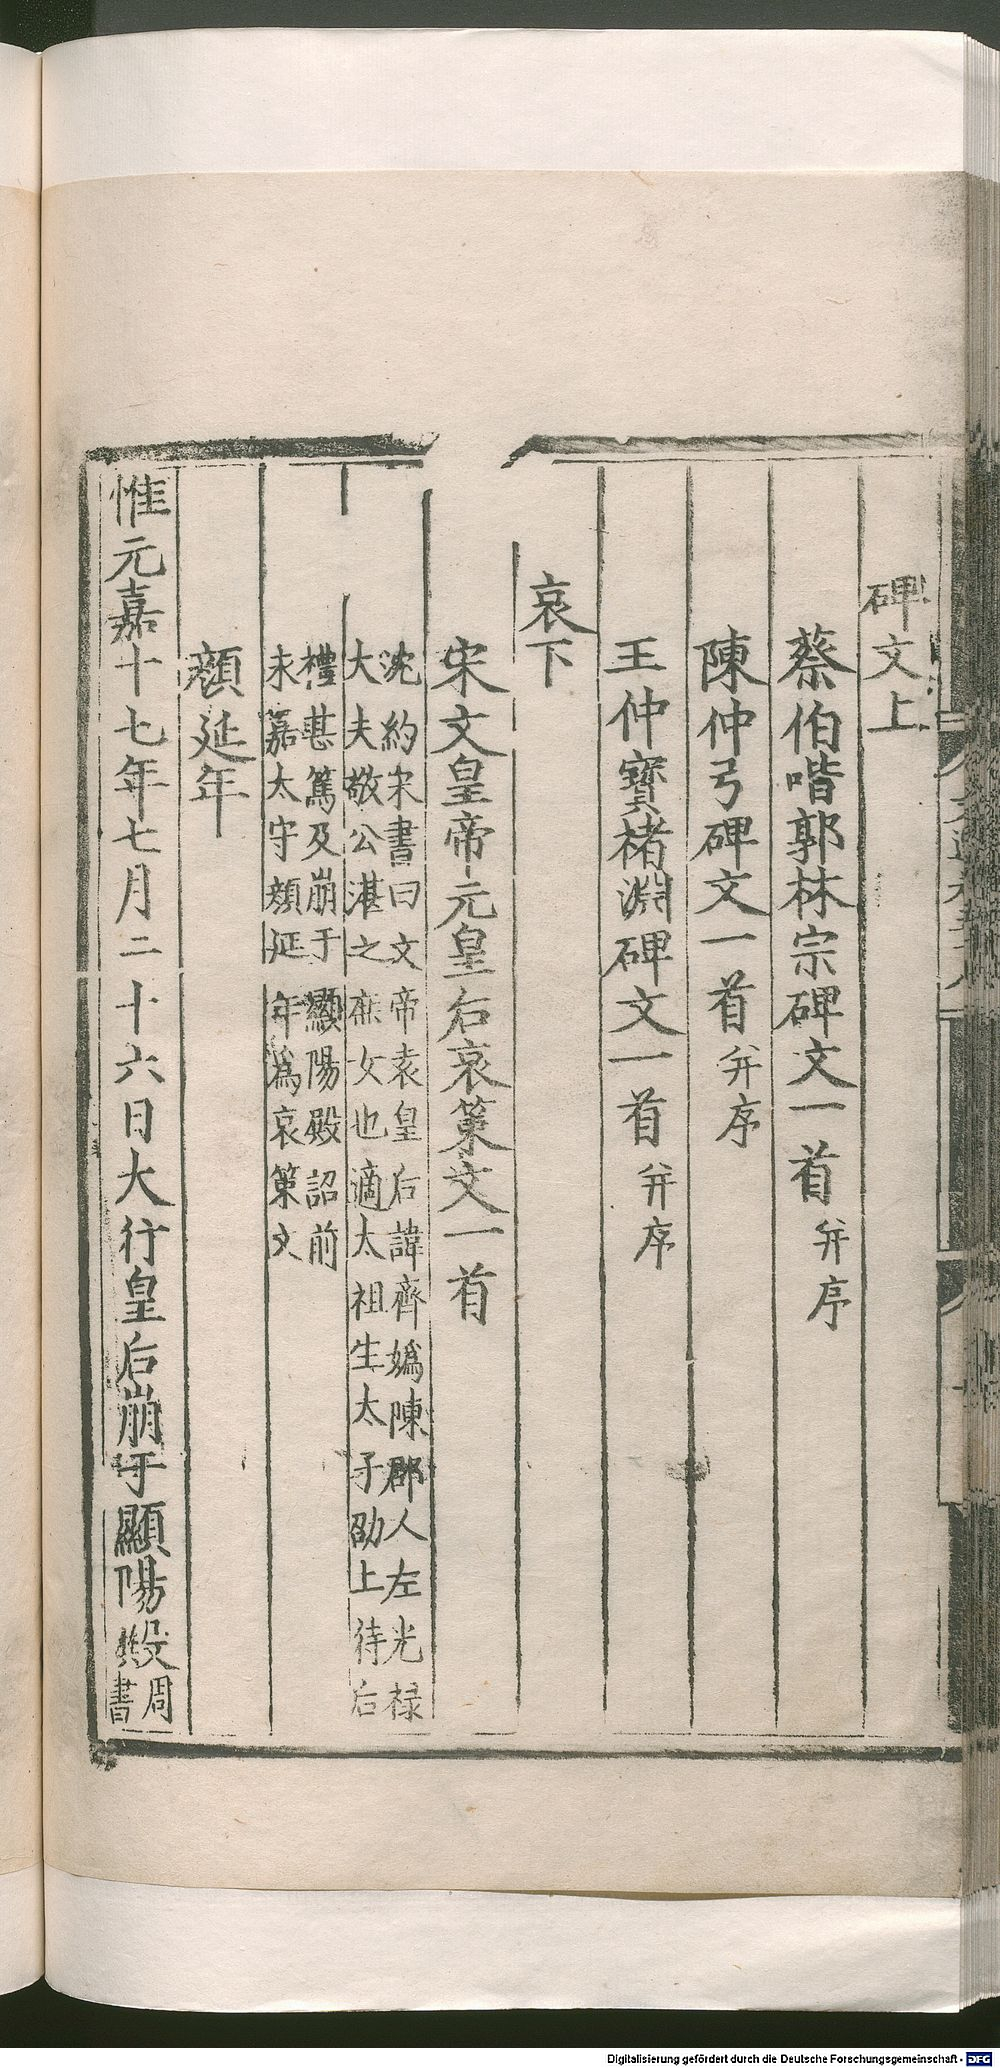 碑文上
蔡伯喈郭林宗碑文一首并序
陳仲弓碑文一首并序
王仲寶褚淵碑文一首并序
哀下
宋文皇帝元皇后哀策文一首
沈約宋書曰文帝袁皇后諱齊嬀陳郡人左光祿
大夫敬公湛之庶女也適太祖生太子劭上待后
禮甚篤及崩于顯陽殿詔前
永嘉太守顏延年爲哀策文
顏延年
惟元嘉十七年七月二十六日大行皇后崩于顯陽殿周
書
Digitalisierung gefördert durch die Deutsche Forschungsgemeinschaft - DFG